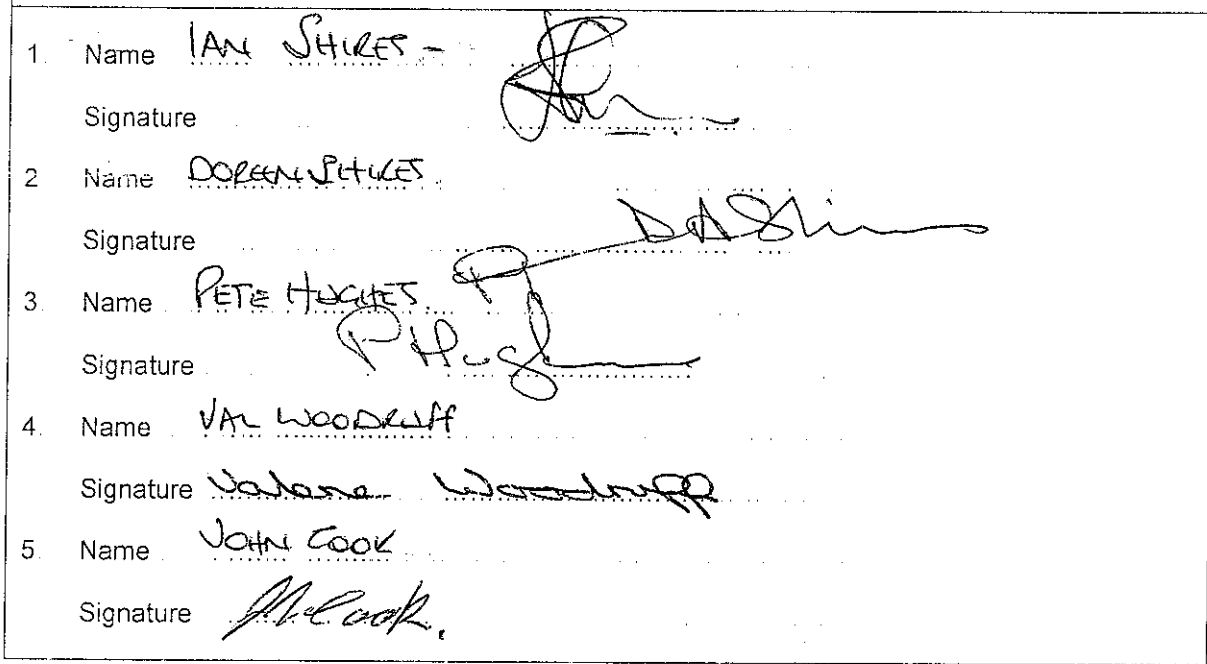 1. Name IAN SHIRES -
Signature
2 Name DOREEN SHIRES
Signature D A Shires
3. Name PETE HUGHES
Signature P Hughes
4. Name VAL WOODRUFF
Signature Valerie Woodruff
5. Name JOHN COOK
Signature Cook.